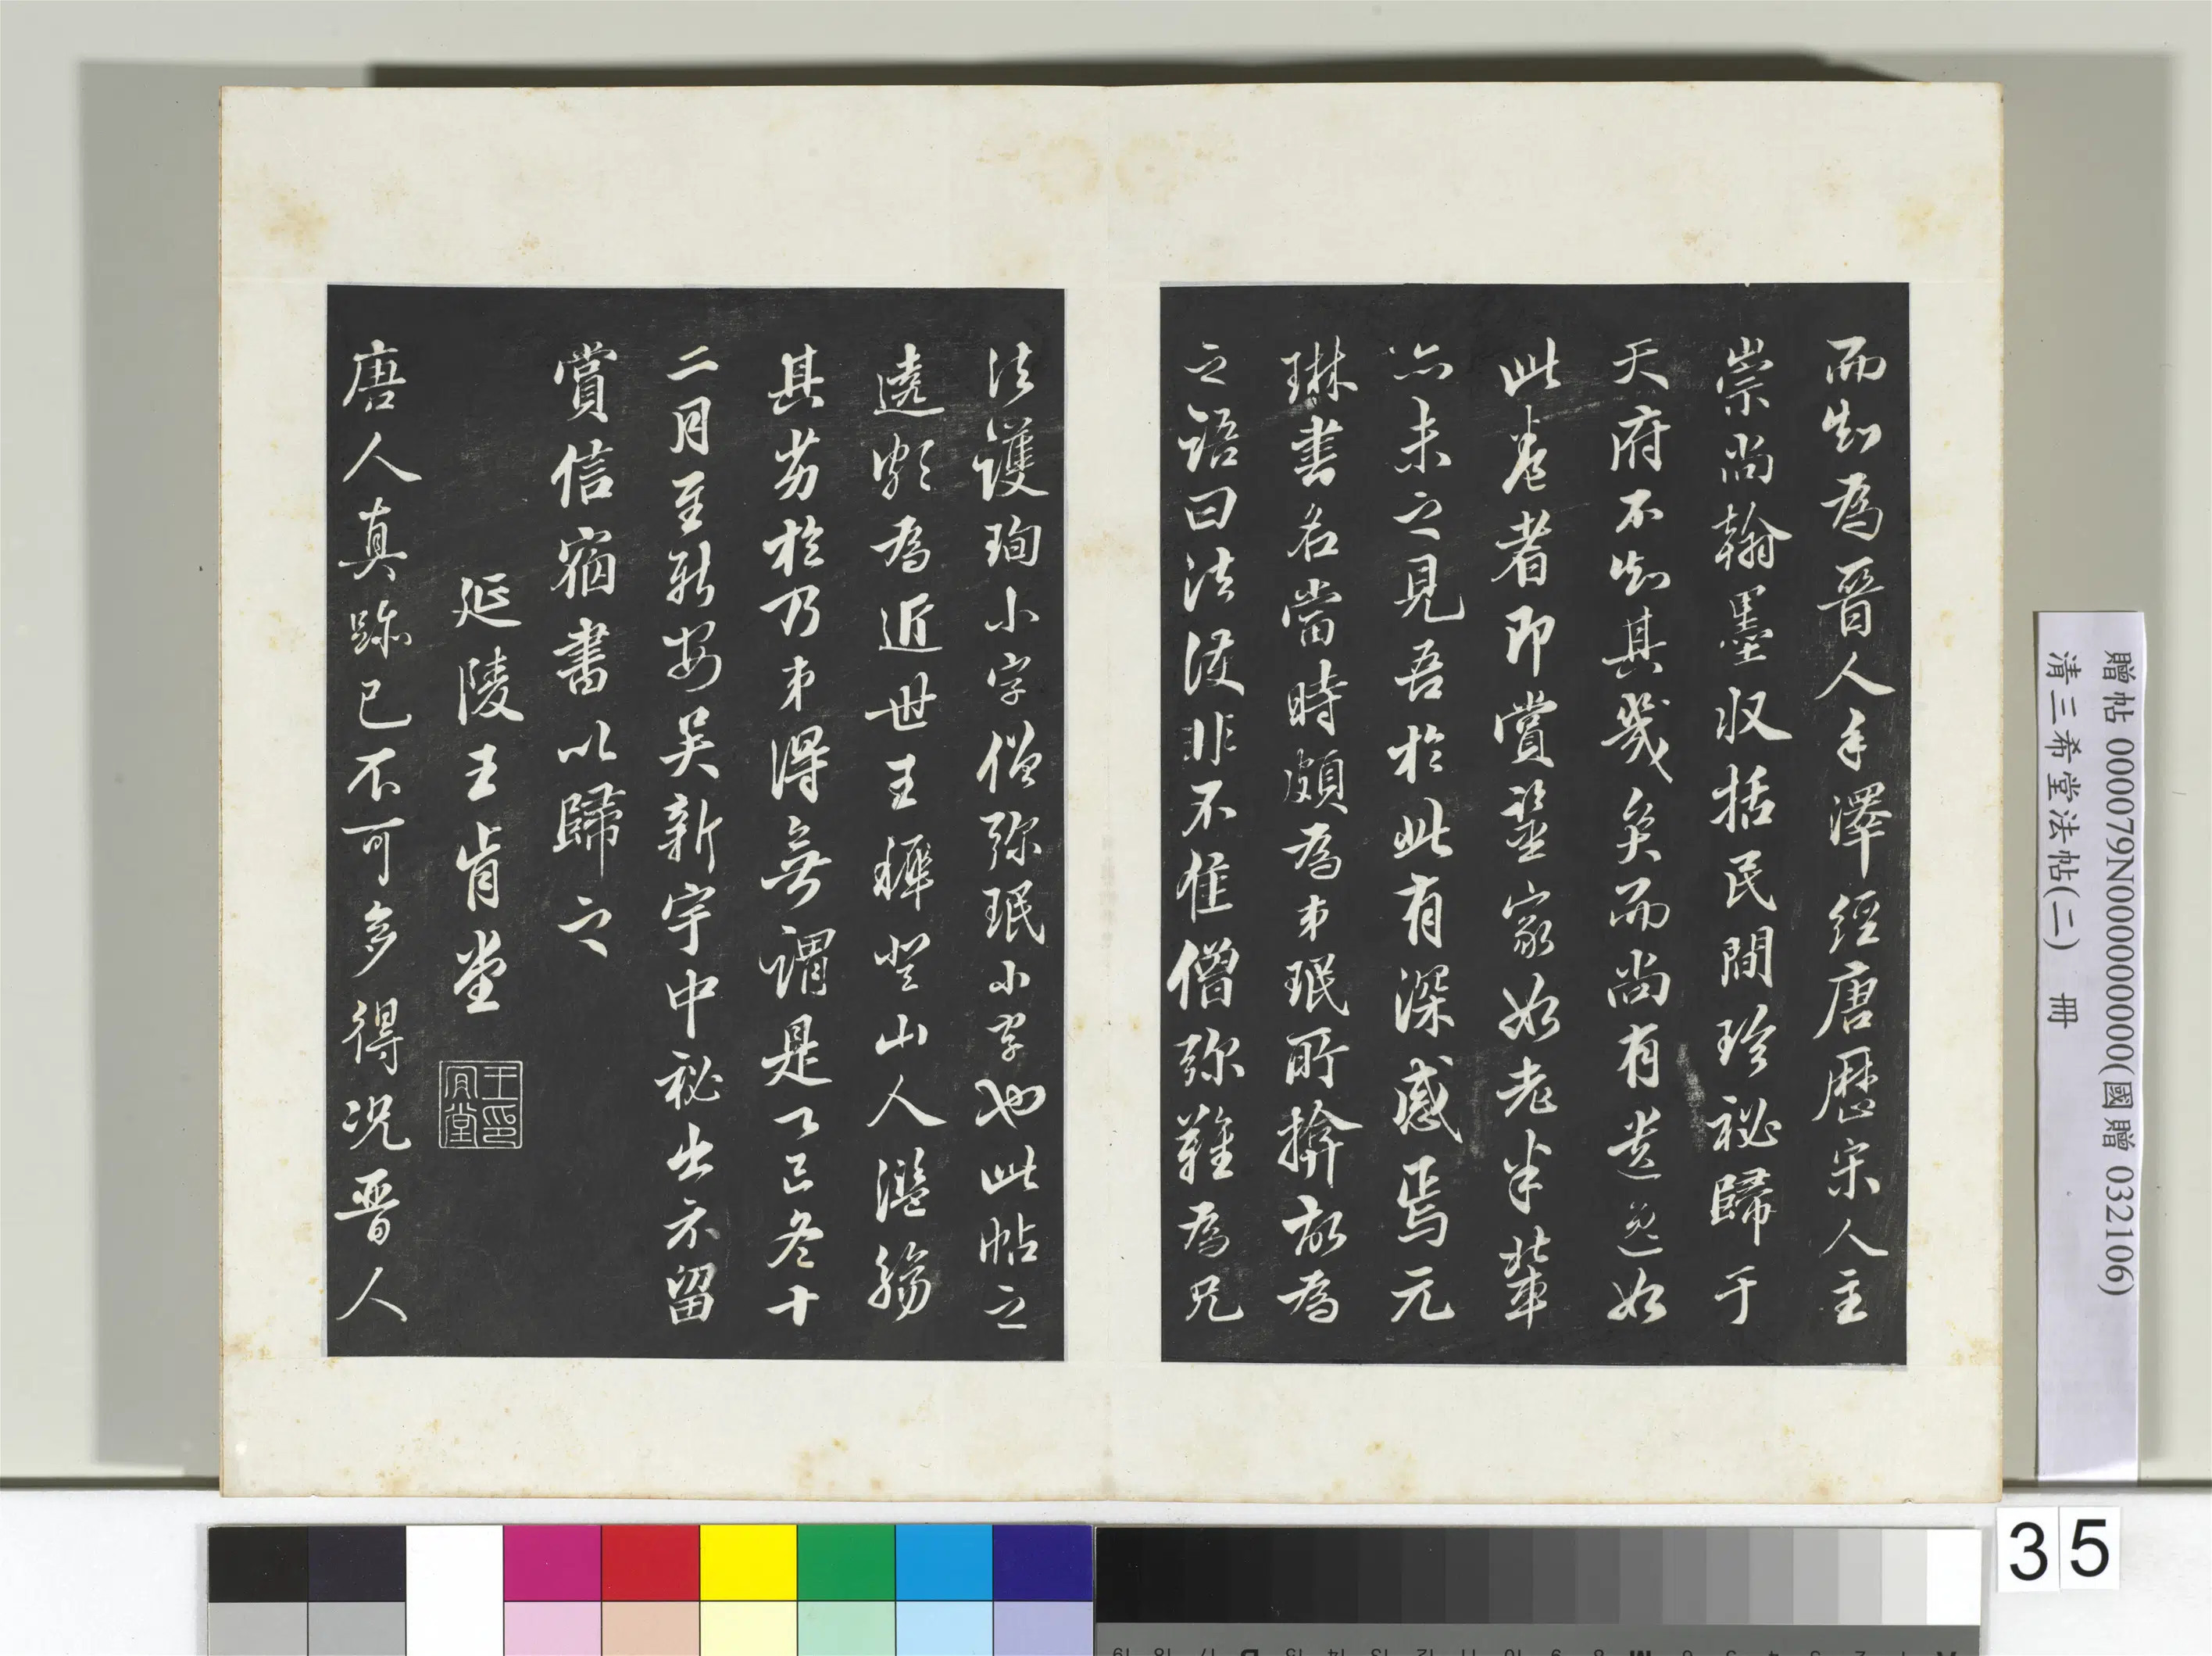 而知為晉人手澤經唐歷宋人主
崇尚翰墨收括民間珍祕歸于
天府不知其幾矣而尚有遺逸如
此卷者即賞鑒家如老米輩
亦未之見吾於此有深感焉元
琳書名當時頗為弟珉所揜故為
之語曰法護非不佳僧彌難為兄
法護珣小字僧彌珉小字也此帖之
遶頗為近世王穉登山人濫觴
其劣於乃弟得無謂是乙巳冬十
二月至新安吳新宇中祕出示留
賞信宿書以歸之
延陵王肯堂
王肯堂印
唐人真跡已不可多得況晉人
贈帖 000079N000000000(國贈 032106)
清三希堂法帖(二) 冊
35